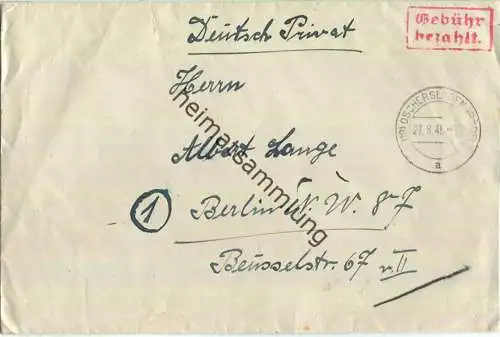 Deutsch Privat
Gebühr
bezahlt.
Herrn
OSCHERSLEBEN
27.8.
a
Albert Lange
1
Berlin N. W. 87
Beusselstr. 67 v. II
heimatsammlung